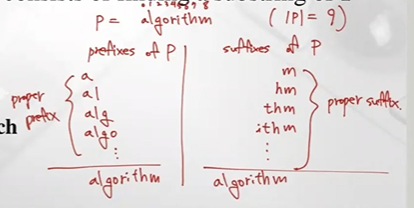 P = algorithm ( |P| = 9 )
prefixes of P
suffixes of P
proper prefix
a
al
alg
algo
⋮
algorithm
m
hm
thm
ithm
⋮
proper suffix.
algorithm